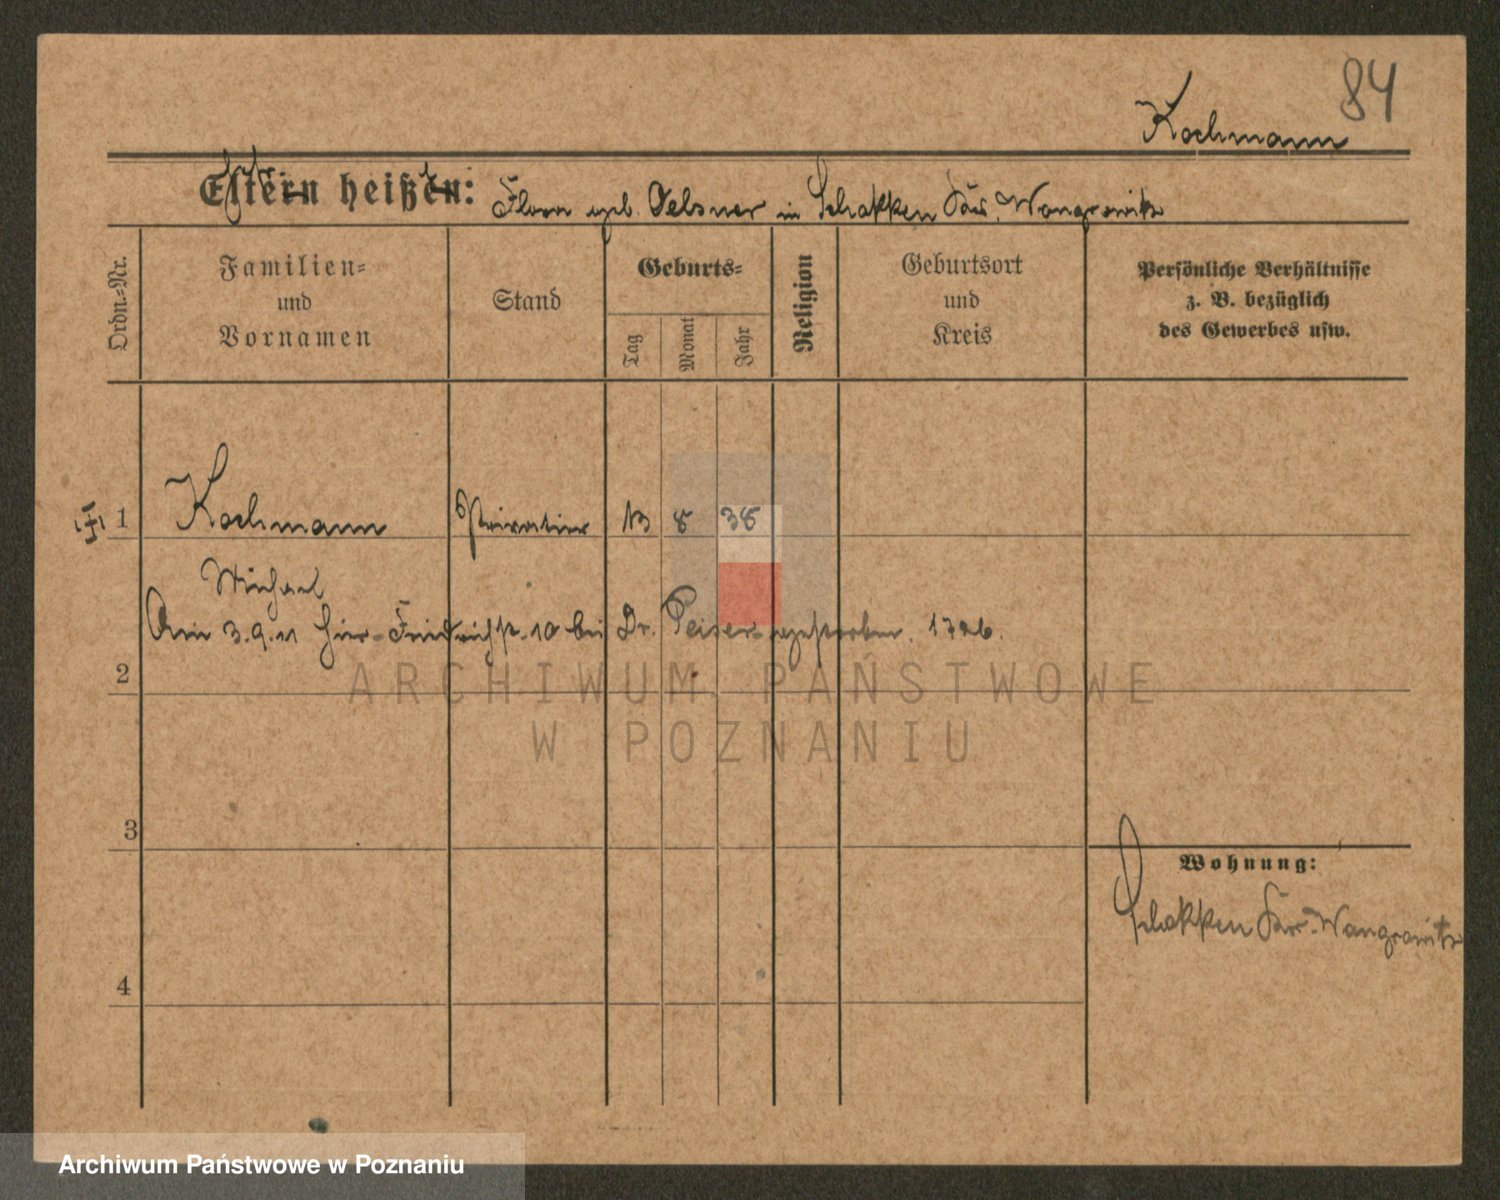 84
Kochmann
Eltern heißen: Flora geb. Oelsner in Schokken Kr. Wongrowitz
Ordn.-Nr.
Familien-
und
Vornamen
Stand
Geburts-
Tag
Monat
Jahr
Religion
Geburtsort
und
Kreis
Persönliche Verhältnisse
z. B. bezüglich
des Gewerbes usw.
1 Kochmann Privatier 13 8 38
Michael
Am 3.9.11 hier Friedrichstr. 10 bei Dr. Peiser gestorben. 1726.
2
3
Wohnung:
Schokken Kr. Wongrowitz
4
ARCHIWUM PAŃSTWOWE
W POZNANIU
Archiwum Państwowe w Poznaniu